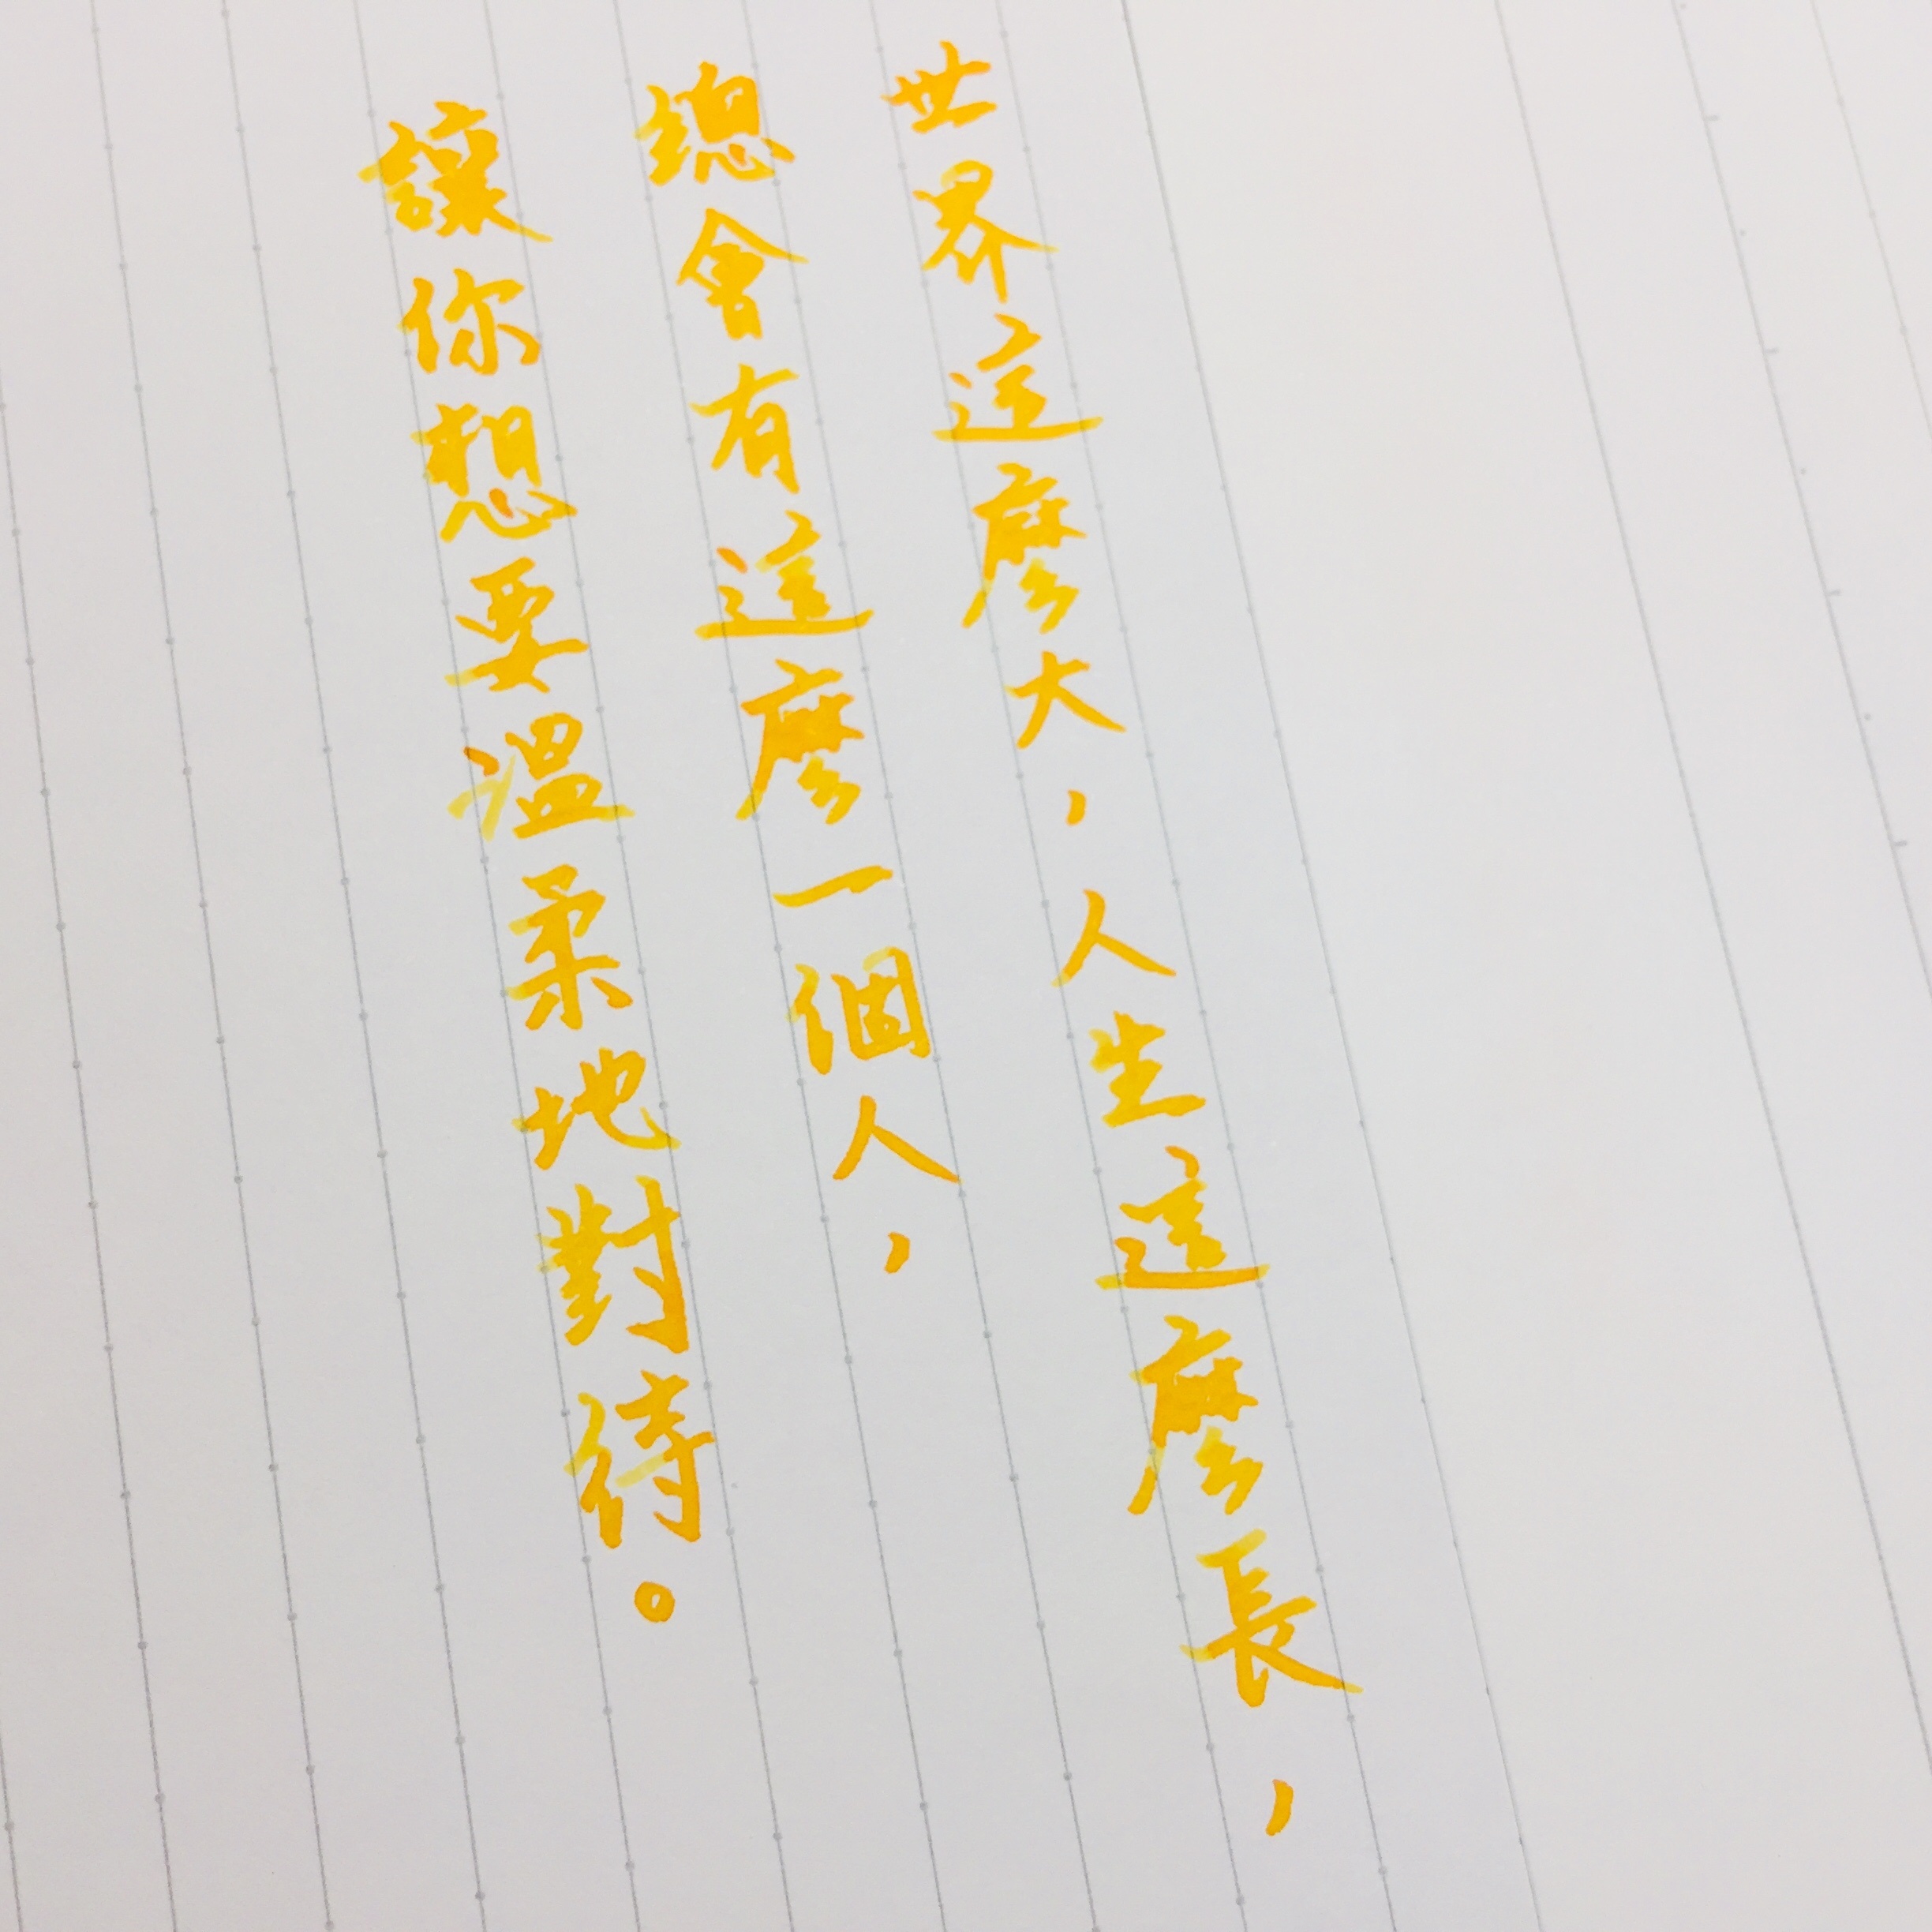 世界這麼大，人生這麼長，
總會有這麼一個人，
讓你想要溫柔地對待。